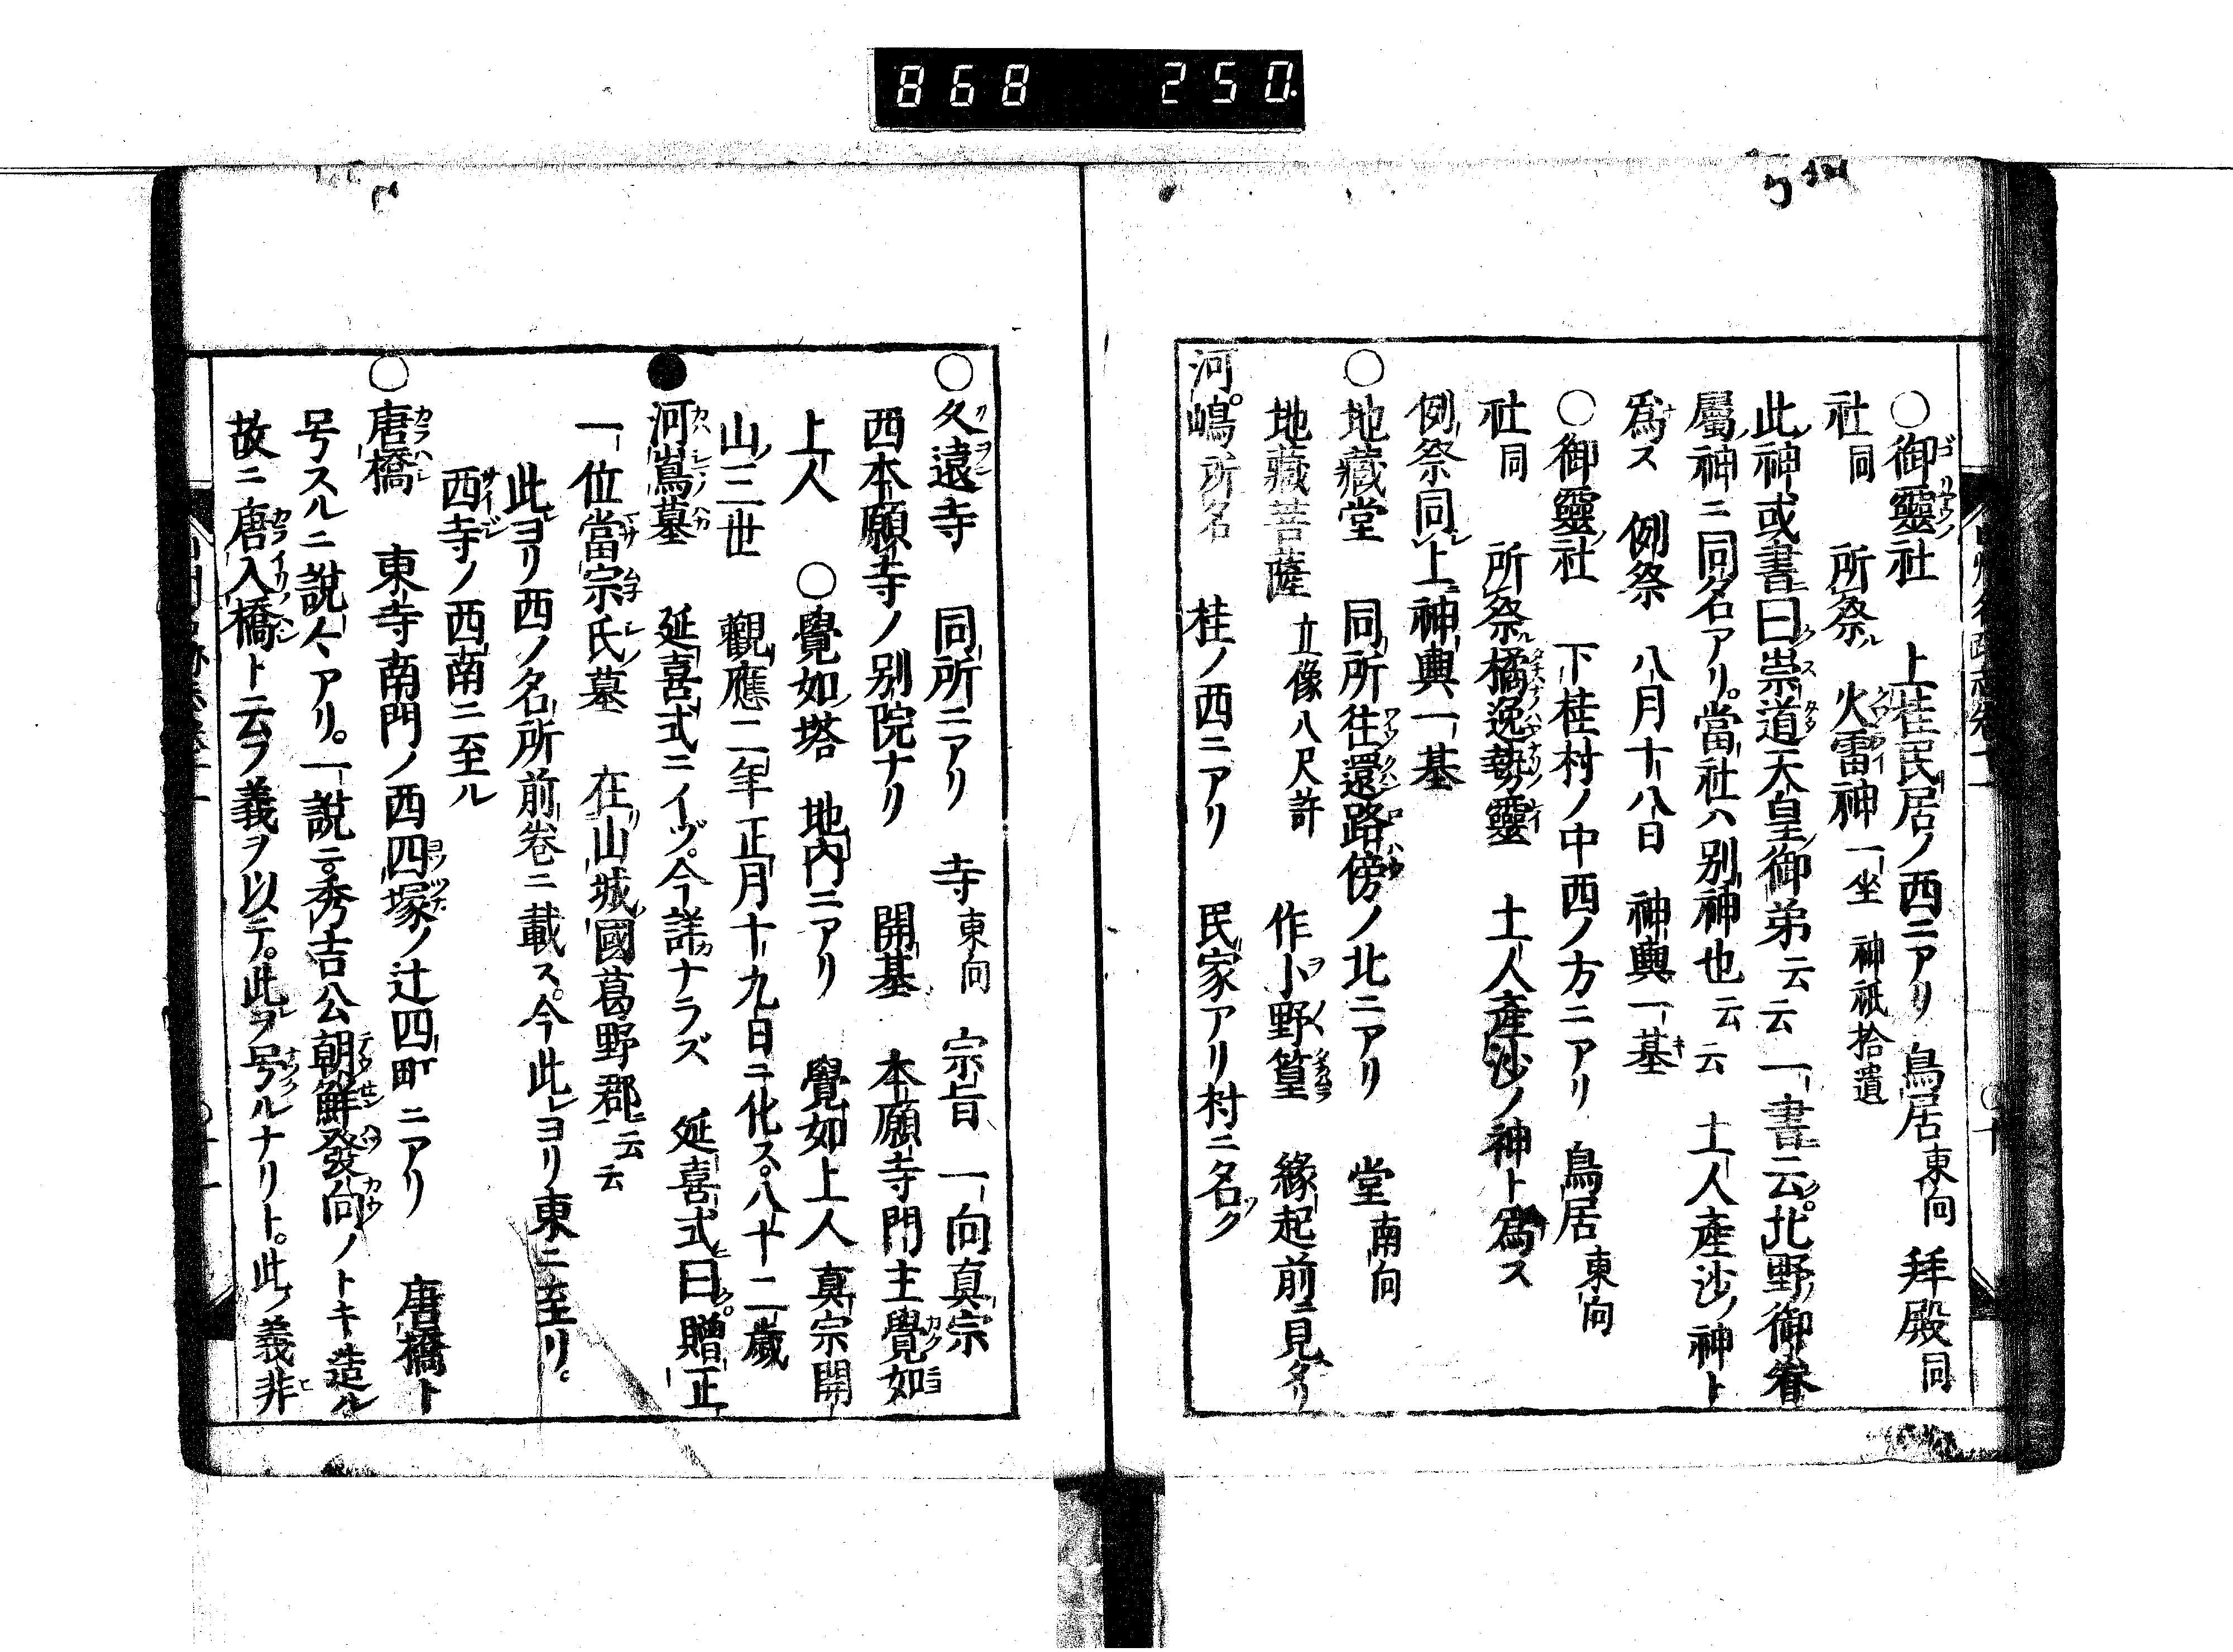 868 250
○御靈社 上桂民居ノ西ニアリ 鳥居東向 拜殿同
社同 所祭 火雷神一坐 神祇拾遺
此神或書曰崇道天皇御弟云云 一書云北野御眷
屬神ニ同名アリ當社ハ別神也云云 土人產沙ノ神ト
爲ス 例祭 八月十八日 神輿一基
○御靈社 下桂村ノ中西ノ方ニアリ 鳥居東向
社同 所祭橘逸勢靈 土人產沙ノ神ト爲ス
例祭同上神輿一基
○地藏堂 同所往還路傍ノ北ニアリ 堂南向
地藏菩薩 立像八尺許 作小野篁 緣起前ニ見タリ
河嶋所名 桂ノ西ニアリ 民家アリ村ニ名ク
○久遠寺 同所ニアリ 寺東向 宗旨 一向真宗
西本願寺ノ別院ナリ 開基 本願寺門主覺如
上人 ○覺如塔 地內ニアリ 覺如上人真宗開
山三世 觀應二年正月十九日ニ化ス八十二歲
●河嶌墓 延喜式ニイヅ今詳ナラズ 延喜式曰贈正
一位當宗氏墓 在山城國葛野郡云云
此ヨリ西ノ名所前卷ニ載ス今此ヨリ東ニ至リ。
西寺ノ西南ニ至ル
○唐橋 東寺南門ノ西四塚ノ辻四町ニアリ 唐橋ト
号スルニ說々アリ。一說ニ秀吉公朝鮮發向ノトキ造ル
故ニ唐入橋ト云フ義ヲ以テ。此ヲ号ルナリト。此ノ義非